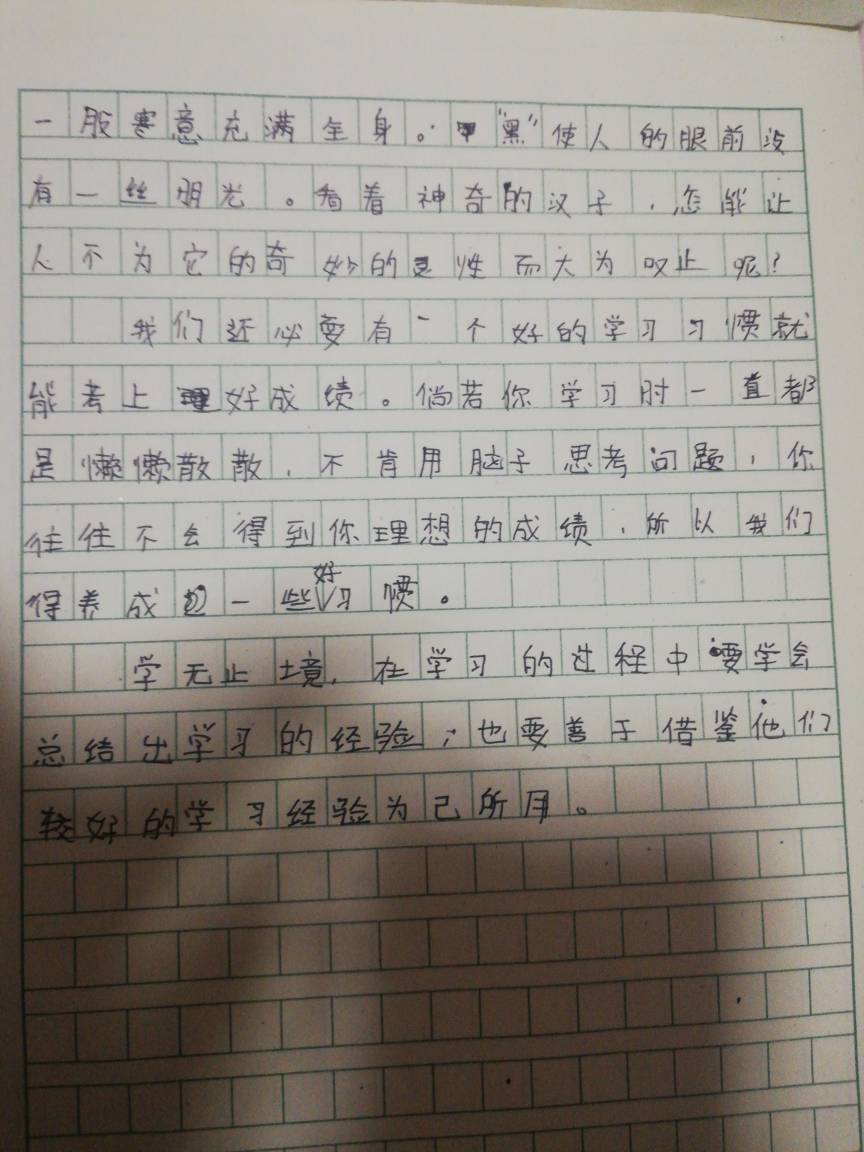 一股寒意充满全身。"黑"使人的眼前没
有一丝明光。看着神奇的汉子，怎能让
人不为它的奇妙的灵性而大为叹止呢？
我们还必要有一个好的学习习惯就
能考上好成绩。倘若你学习时一直都
是懒懒散散，不肯用脑子思考问题，你
往往不会得到你理想的成绩，所以我们
得养成一些好习惯。
学无止境，在学习的过程中要学会
总结出学习的经验；也要善于借鉴他们
较好的学习经验为己所用。